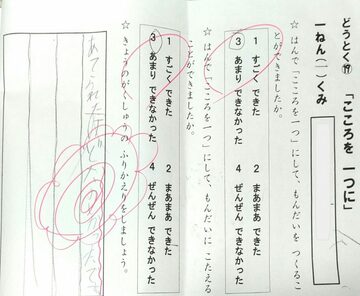 どうとく⑰ 「こころを 一つに」
一ねん(一)くみ
☆ はんで「こころを 一つ」にして、もんだいを つくるこ
とができましたか。
1 すごく できた 2 まあまあ できた
3 あまり できなかった 4 ぜんぜん できなかった
☆ はんで「こころを 一つ」にして、もんだいに こたえる
ことができましたか。
1 すごく できた 2 まあまあ できた
3 あまり できなかった 4 ぜんぜん できなかった
☆ きょうのが くしゅうの ふりかえりをしましょう。
あてられ